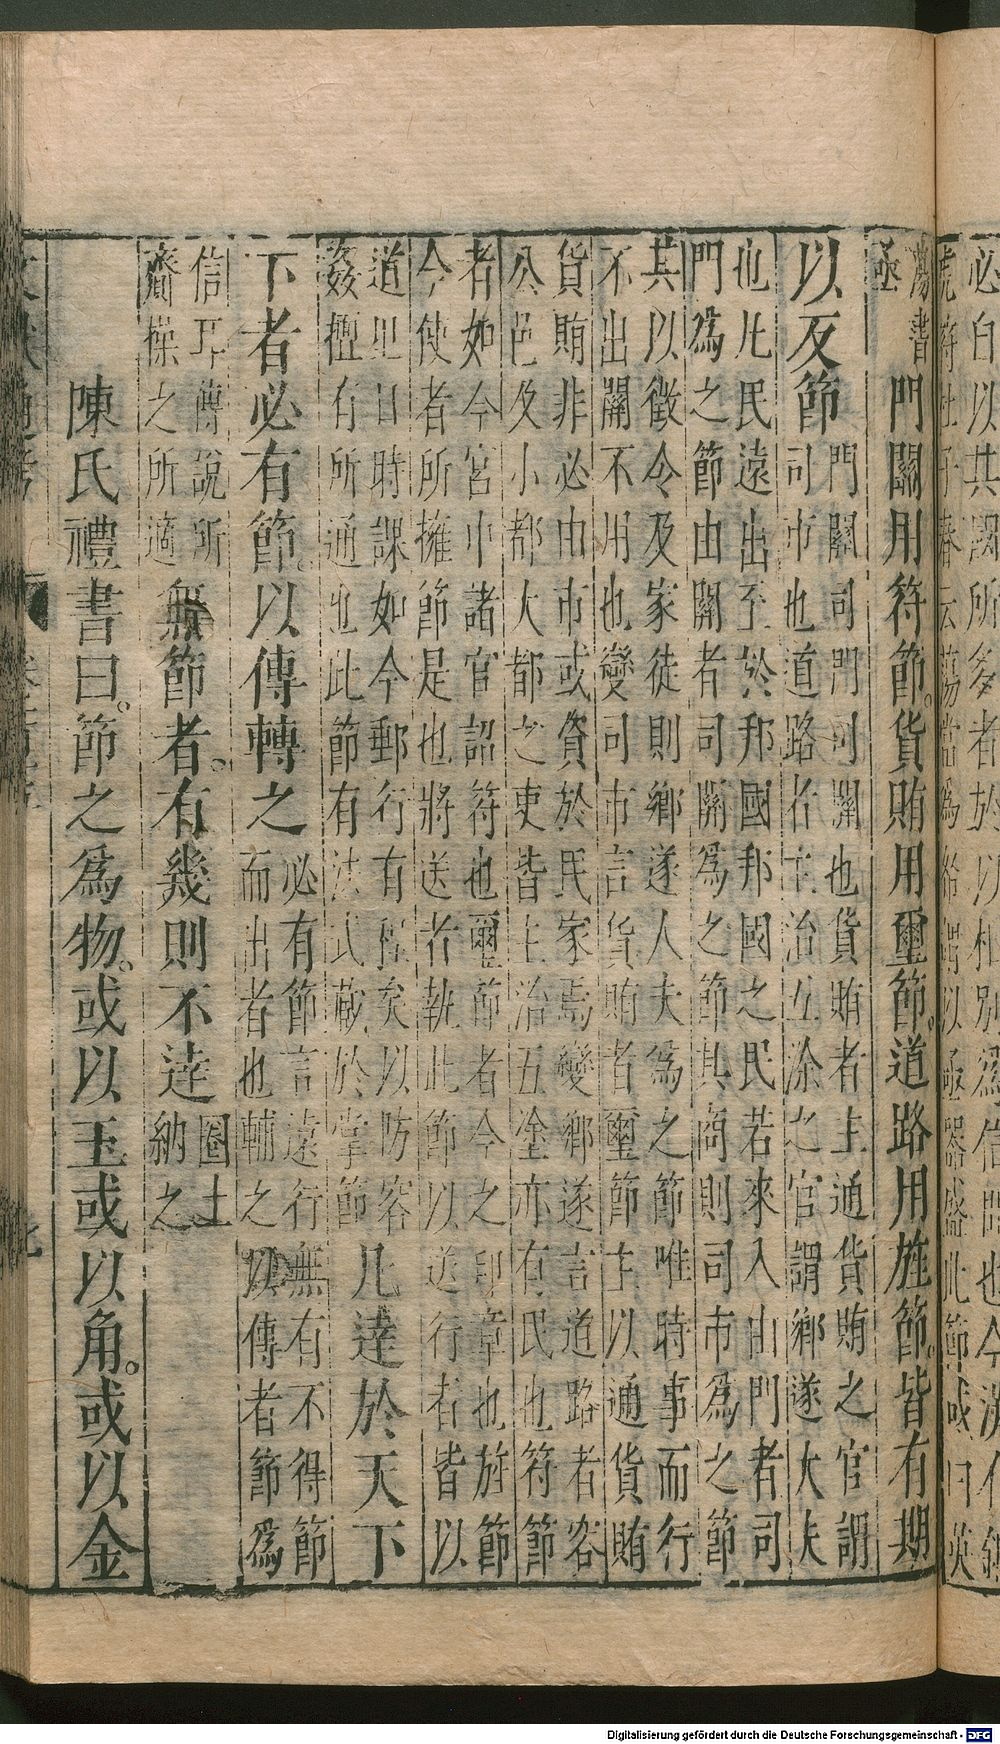 蕩音
函 門關用符節。貨賄用璽節。道路用旌節。皆有期
以反節 門關司門司關也貨賄者主通貨賄之官謂
司市也道路者主治五涂之官謂鄉遂大夫
也凡民遠出至於邦國邦國之民若來入由門者司
門爲之節由關者司關爲之節其商則司市爲之節
其以徵令及家徒則鄉遂人夫爲之節唯時事而行
不出關不用也變司市言貨賄者璽節主以通貨賄
貨賄非必由市或資於民家焉變鄉遂言道路者容
公邑及小都大都之吏皆主治五塗亦有民也符節
者如今宮中諸官詔符也璽節者今之印章也旌節
今使者所擁節是也將送者執此節以送行者皆以
道里日時課如今郵行有程矣以防容
姦擅有所通也此節有法式藏於掌節 凡達於天下
下者必有節。以傳轉之 必有節言遠行無有不得節
而出者也輔之以傳者節爲
信耳傳說所
齎操之所適 無節者。有幾則不達 圜土
納之
陳氏禮書曰。節之爲物。或以玉或以角。或以金
Digitalisierung gefördert durch die Deutsche Forschungsgemeinschaft - DFG